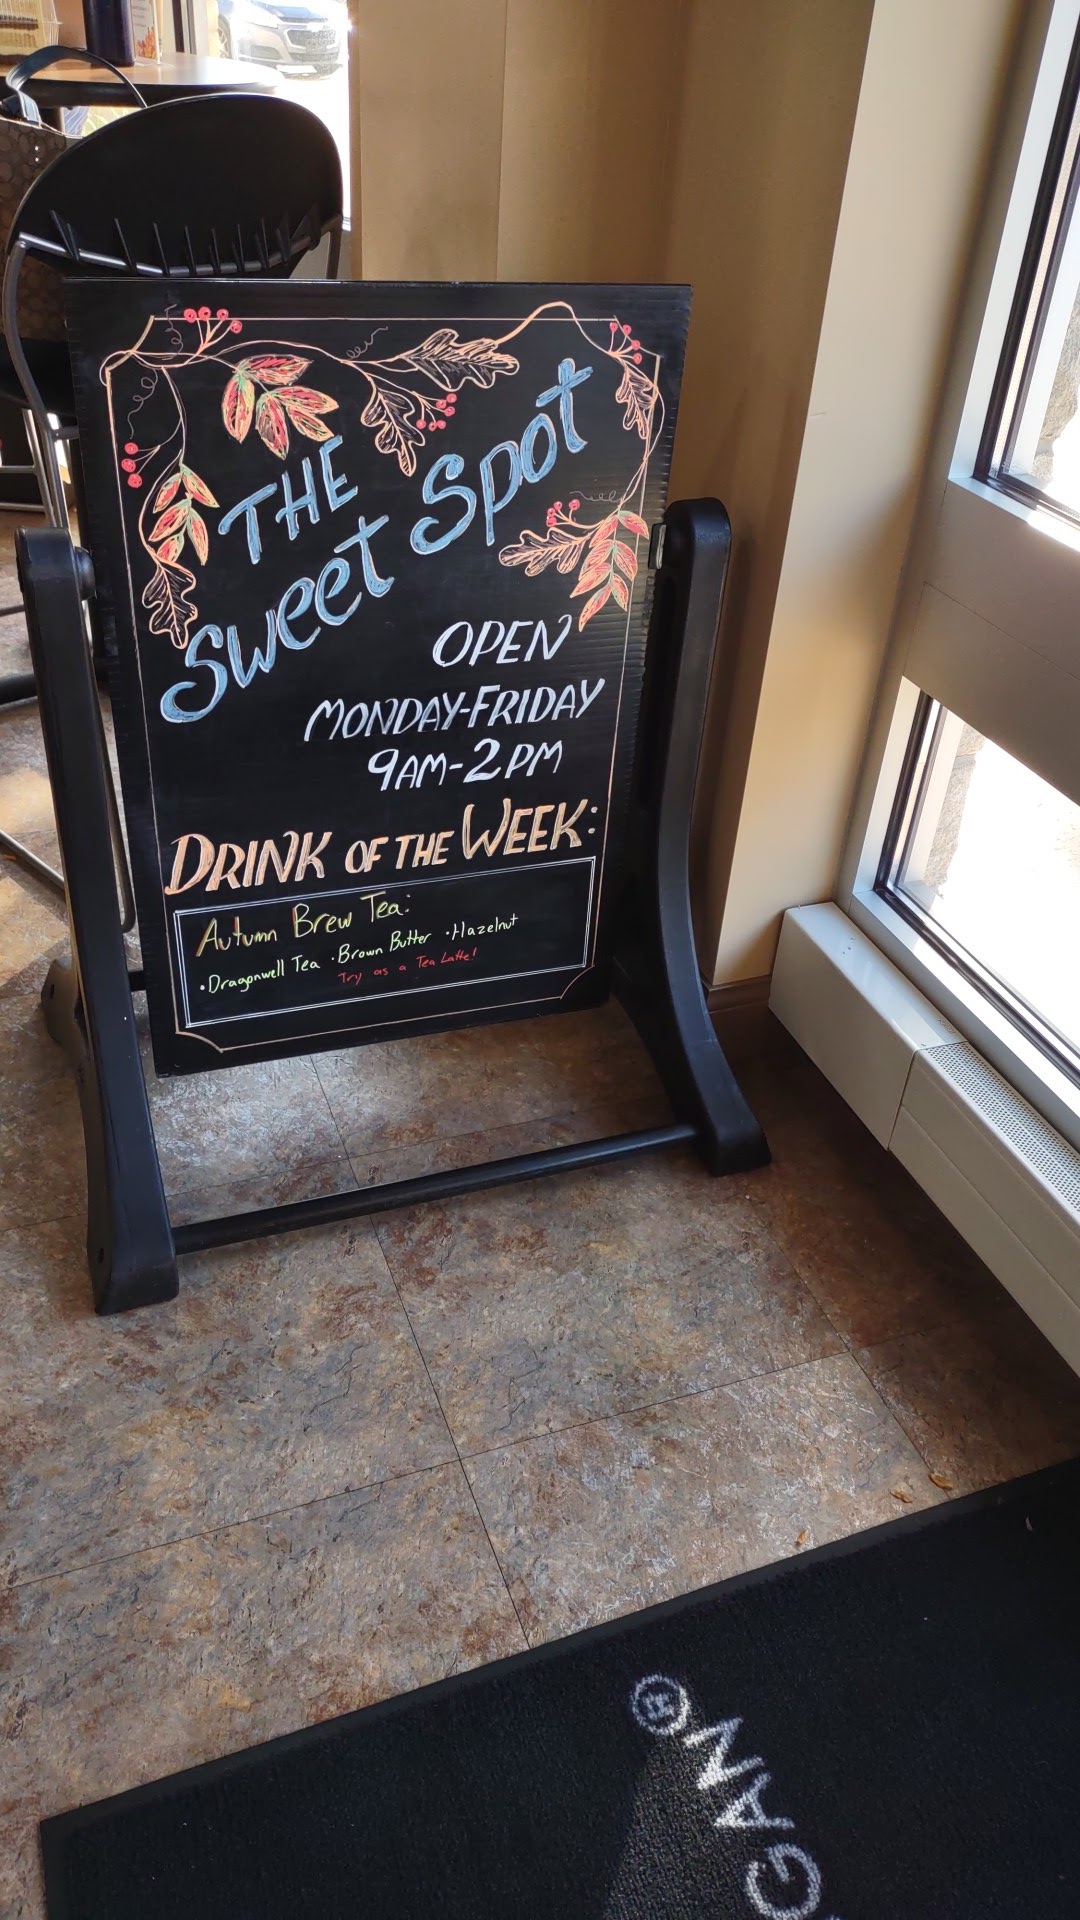 THE
Sweet Spot
OPEN
MONDAY-FRIDAY
9AM-2PM
DRINK OF THE WEEK:
Autumn Brew Tea:
•Dragonwell Tea •Brown Butter •Hazelnut
Try as a Tea Latte!
GAN®